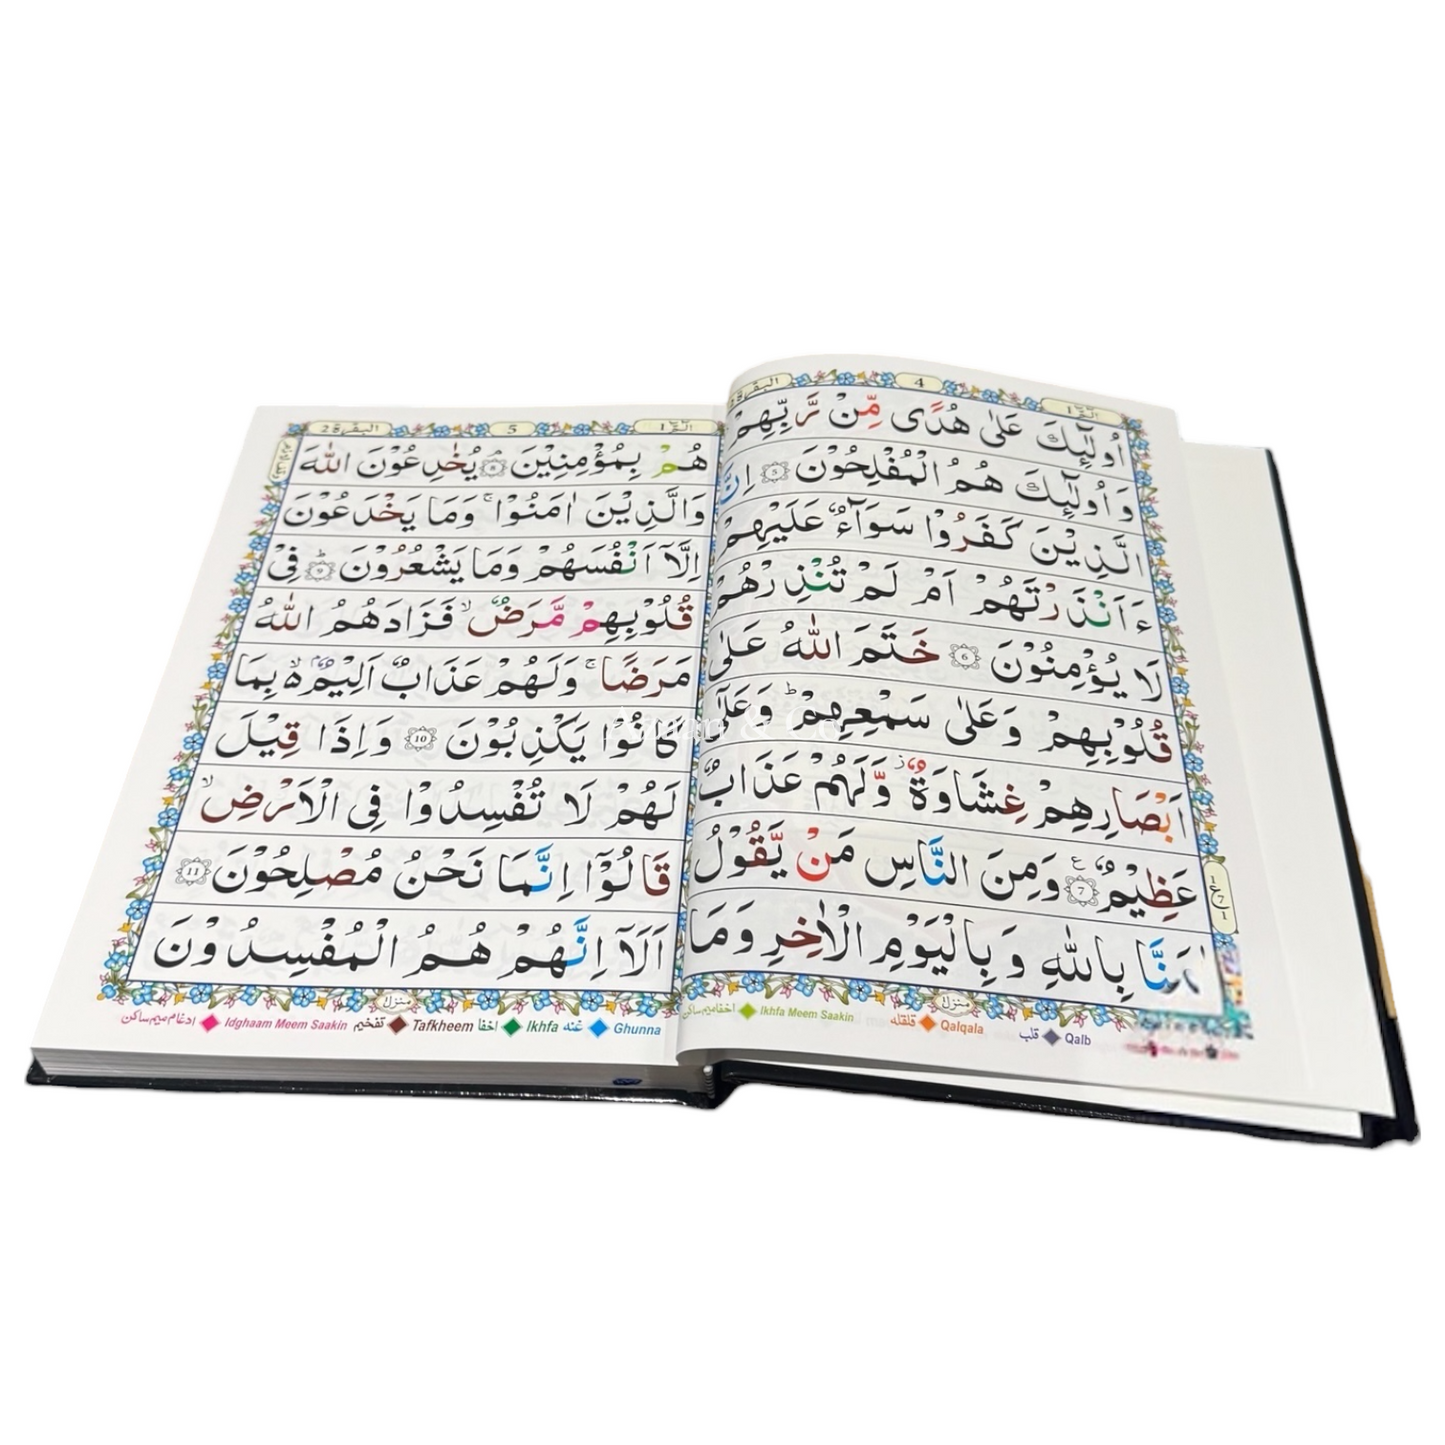 الٓمّٓ 1
4
البقرة 2
اُولٰٓئِكَ عَلٰى هُدًى مِّنْ رَّبِّهِمْ
وَاُولٰٓئِكَ هُمُ الْمُفْلِحُوْنَ ۝5 اِنَّ
الَّذِيْنَ كَفَرُوْا سَوَآءٌ عَلَيْهِمْ
ءَاَنْذَرْتَهُمْ اَمْ لَمْ تُنْذِرْهُمْ
لَا يُؤْمِنُوْنَ ۝6 خَتَمَ اللّٰهُ عَلٰى
قُلُوْبِهِمْ وَعَلٰى سَمْعِهِمْ ؕ وَعَلٰٓى
اَبْصَارِهِمْ غِشَاوَةٌ ؗ وَّلَهُمْ عَذَابٌ
عَظِيْمٌ ۝7 ع وَمِنَ النَّاسِ مَنْ يَّقُوْلُ
اٰمَنَّا بِاللّٰهِ وَبِالْيَوْمِ الْاٰخِرِ وَمَا
منزل
اخفا میم ساکن Ikhfa Meem Saakin قلقله Qalqala قلب Qalb
الٓمّٓ 1
5
البقرة 2
هُمْ بِمُؤْمِنِيْنَ ۝8 يُخٰدِعُوْنَ اللّٰهَ
وَالَّذِيْنَ اٰمَنُوْا ۚ وَمَا يَخْدَعُوْنَ
اِلَّآ اَنْفُسَهُمْ وَمَا يَشْعُرُوْنَ ؕ ۝9 فِيْ
قُلُوْبِهِمْ مَّرَضٌ ۙ فَزَادَهُمُ اللّٰهُ
مَرَضًا ۚ وَلَهُمْ عَذَابٌ اَلِيْمٌۢ ۙ۬ بِمَا
كَانُوْا يَكْذِبُوْنَ ۝10 وَاِذَا قِيْلَ
لَهُمْ لَا تُفْسِدُوْا فِى الْاَرْضِ ۙ
قَالُوْٓا اِنَّمَا نَحْنُ مُصْلِحُوْنَ ۝11
اَلَآ اِنَّهُمْ هُمُ الْمُفْسِدُوْنَ
منزل
ادغام میم ساکن Idghaam Meem Saakin تفخیم Tafkheem اخفا Ikhfa غنه Ghunna